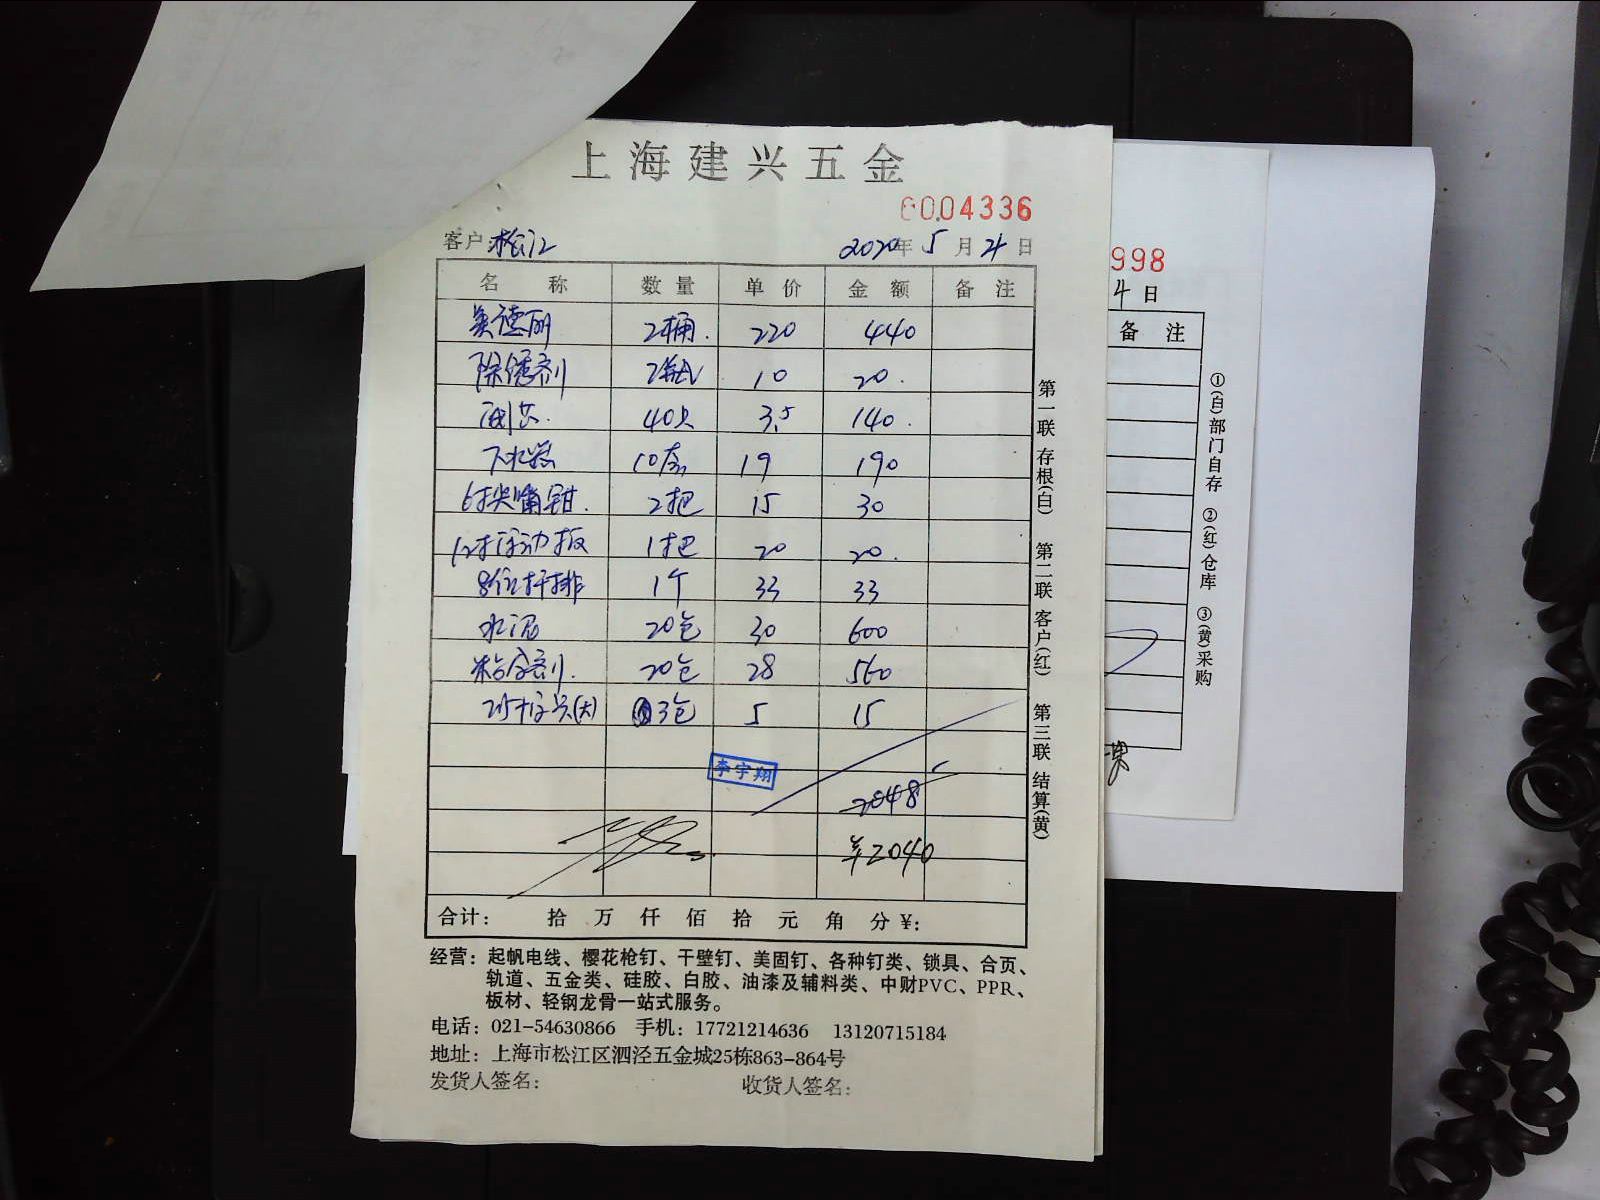 上海建兴五金
0004336
客户 松江 2020年5月4日
名称 数量 单价 金额 备注
美德丽 2桶. 220 440
除锈剂 2瓶 10 20.
40只 3.5 140.
下水器 10套 19 190
6寸尖嘴钳. 2把 15 30
12寸活动扳 1把 20 20.
8位 排 1个 33 33
水泥 20包 30 600
粘合剂. 20包 28 560
(大) 3包 5 15
李宇翔
2048
¥2040
合计: 拾 万 仟 佰 拾 元 角 分 ¥:
经营: 起帆电线、樱花枪钉、干壁钉、美固钉、各种钉类、锁具、合页、
轨道、五金类、硅胶、白胶、油漆及辅料类、中财PVC、PPR、
板材、轻钢龙骨一站式服务。
电话: 021-54630866 手机: 17721214636 13120715184
地址: 上海市松江区泗泾五金城25栋863-864号
发货人签名: 收货人签名:
第一联 存根(白) 第二联 客户(红) 第三联 结算(黄)
998
4日
备注
①(白)部门自存 ②(红)仓库 ③(黄)采购